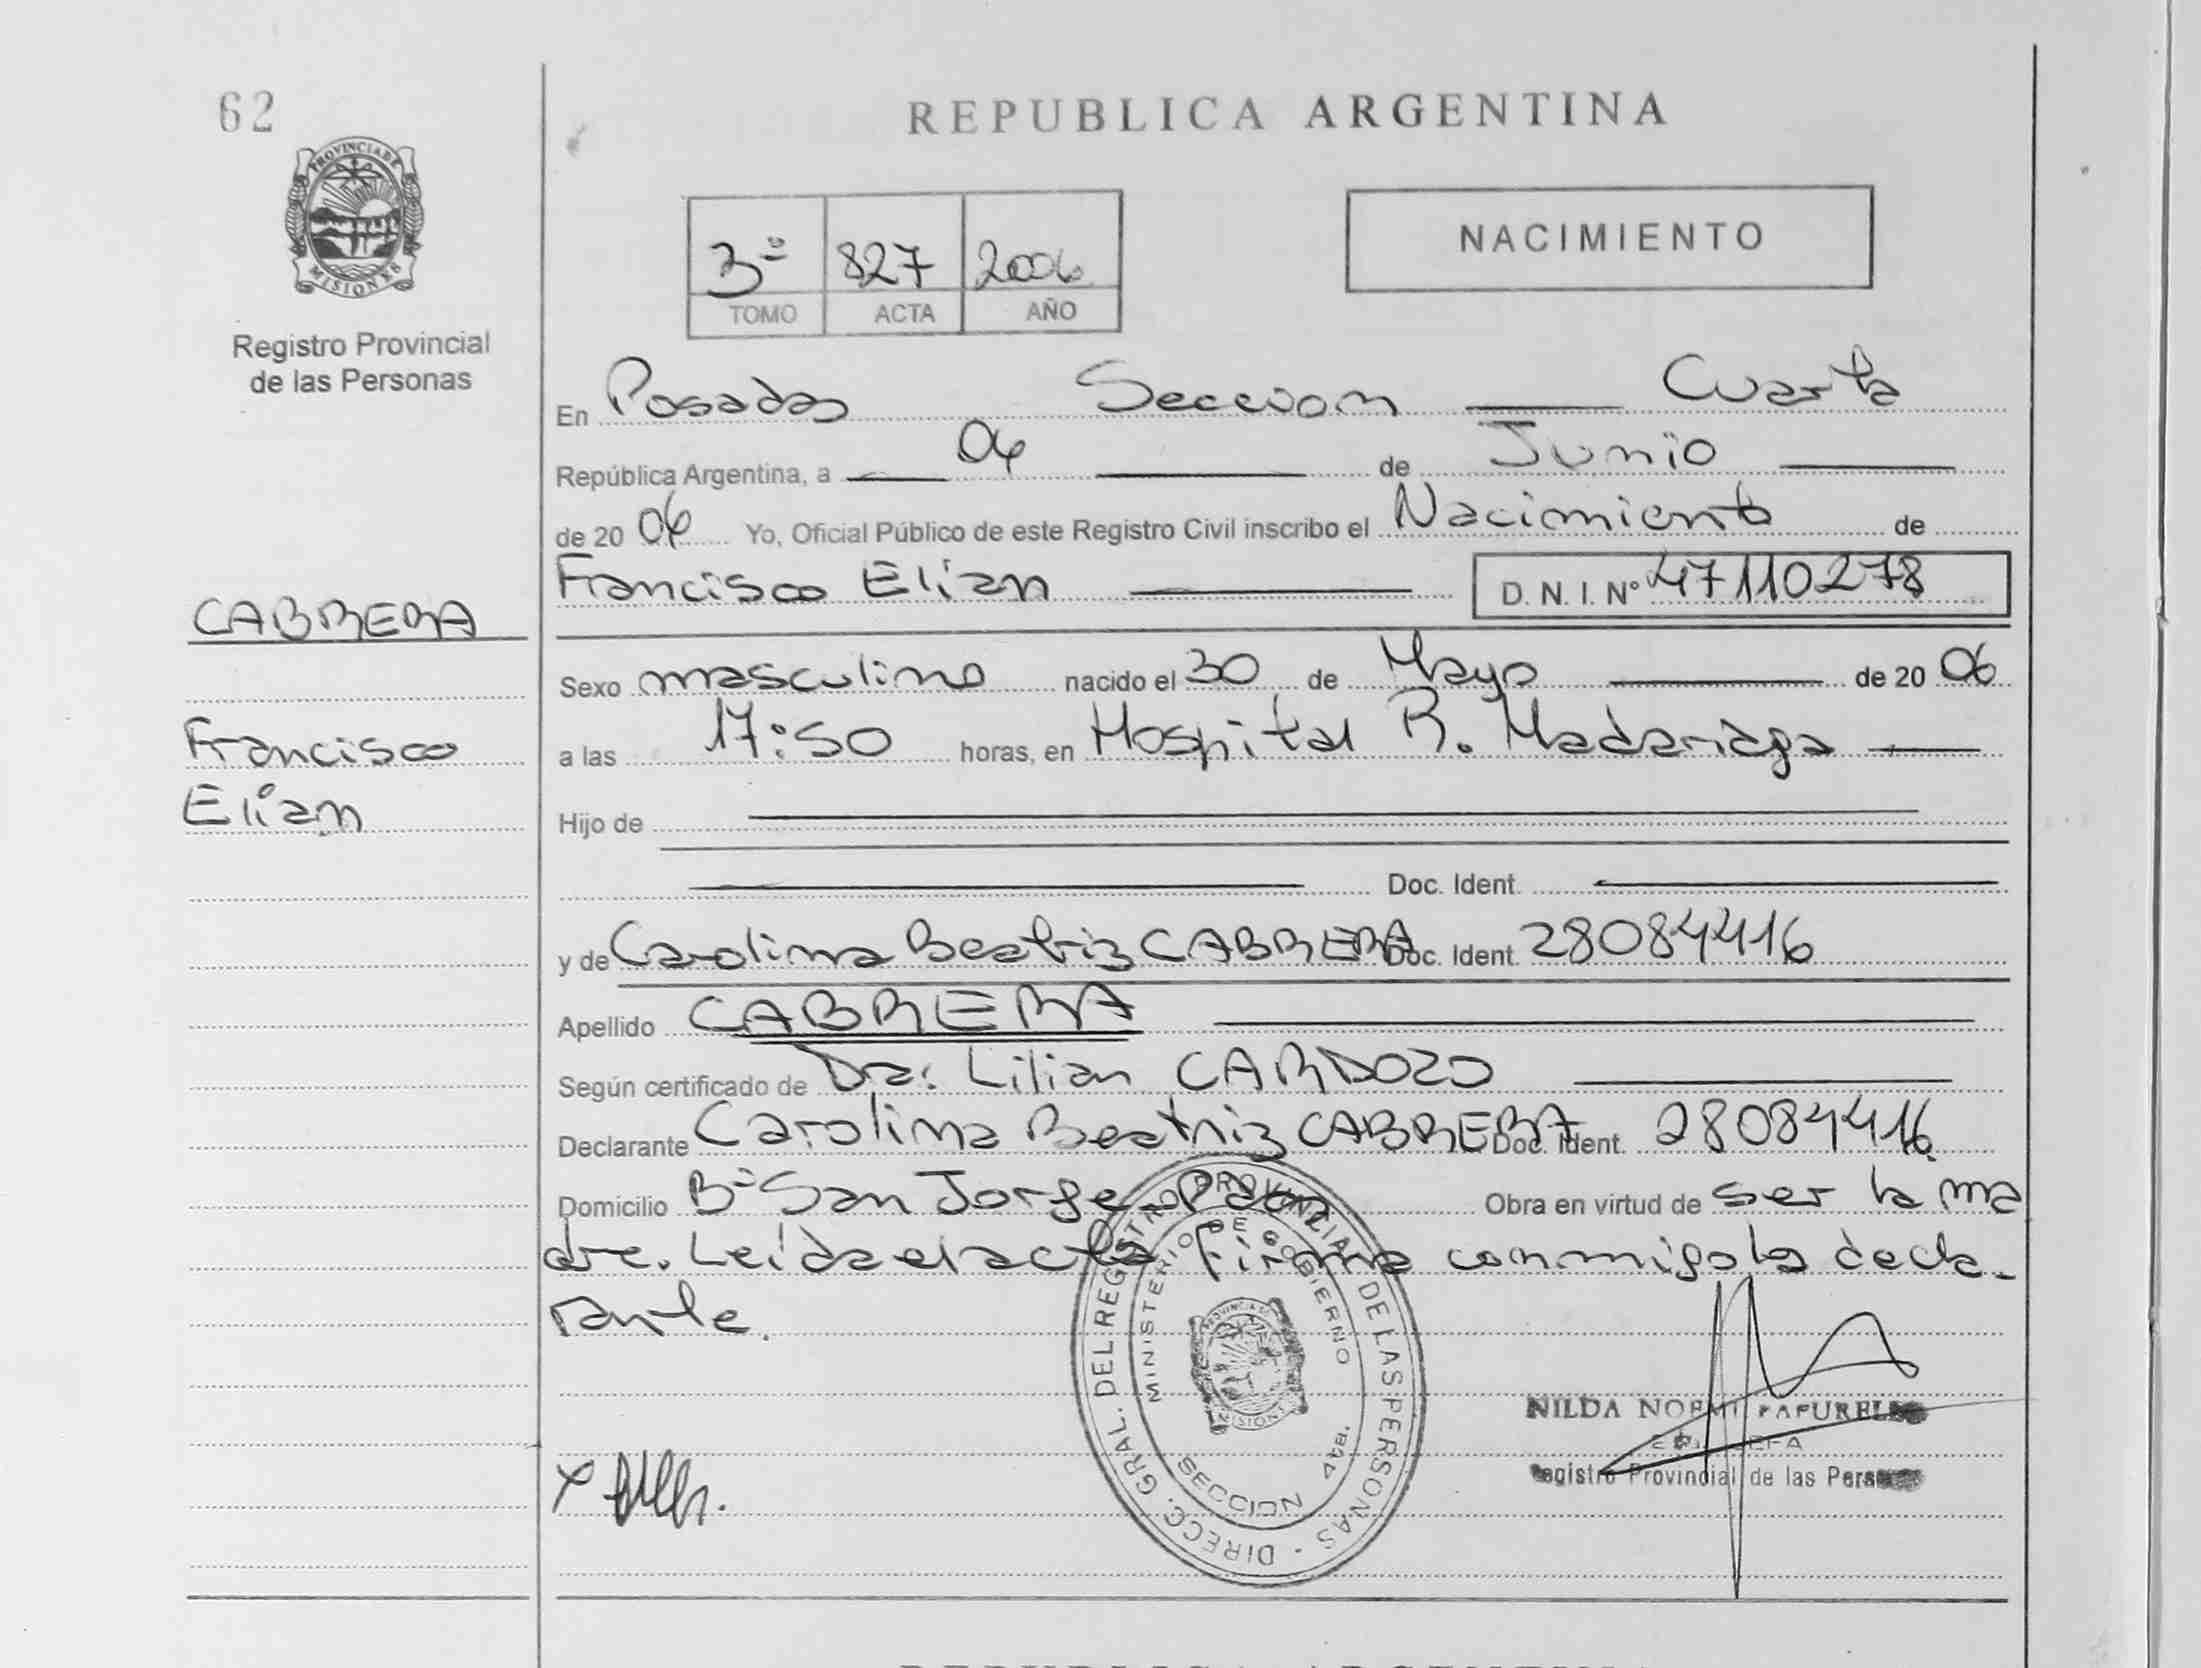 62
REPUBLICA ARGENTINA
PROVINCIA DE
MISIONES
Registro Provincial
de las Personas
3º 827 2006
TOMO ACTA AÑO
NACIMIENTO
En Posadas Seccion Cuarta
República Argentina, a 06 de Junio
de 20 06 Yo, Oficial Público de este Registro Civil inscribo el Nacimiento de
Francisco Elian D. N. I. Nº 47110278
CABRERA
Sexo masculino nacido el 30 de Mayo de 20 06
Francisco
Elian
a las 17:50 horas, en Hospital R. Madariaga
Hijo de
Doc. Ident.
y de Carolina Beatriz CABRERA Doc. Ident. 28084416
Apellido CABRERA
Según certificado de Dra. Lilian CARDOZO
Declarante Carolina Beatriz CABRERA Doc. Ident. 28084416
Domicilio Bº San Jorge Pdas Obra en virtud de ser la ma
dre. Leída el acta firma conmigo la decla-
rante.
DIRECC. GRAL. DEL REGISTRO PROVINCIAL DE LAS PERSONAS
MINISTERIO DE GOBIERNO
SECCION 4ta.
NILDA NOEMI
Registro Provincial de las Personas